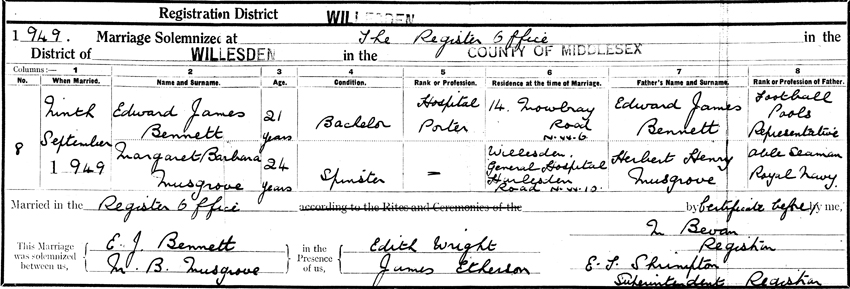 Registration District WILLESDEN
1949. Marriage Solemnized at The Register Office in the
District of WILLESDEN in the COUNTY OF MIDDLESEX
Columns:— 1 2 3 4 5 6 7 8
No. When Married. Name and Surname. Age. Condition. Rank or Profession. Residence at the time of Marriage. Father's Name and Surname. Rank or Profession of Father.
8 Ninth September 1949
Edward James Bennett 21 years Bachelor Hospital Porter 14. Mowbray Road N.W.6 Edward James Bennett Football Pools Representative
Margaret Barbara Musgrove 24 years Spinster — Willesden General Hospital Harlesden Road N.W.10. Herbert Henry Musgrove Able Seaman Royal Navy.
Married in the Register Office according to the Rites and Ceremonies of the by Certificate before me,
This Marriage was solemnized between us, E. J. Bennett M. B. Musgrove in the Presence of us, Edith Wright James Etherson
M Bevan
Registrar
E. S. Shrimpton
Superintendent Registrar